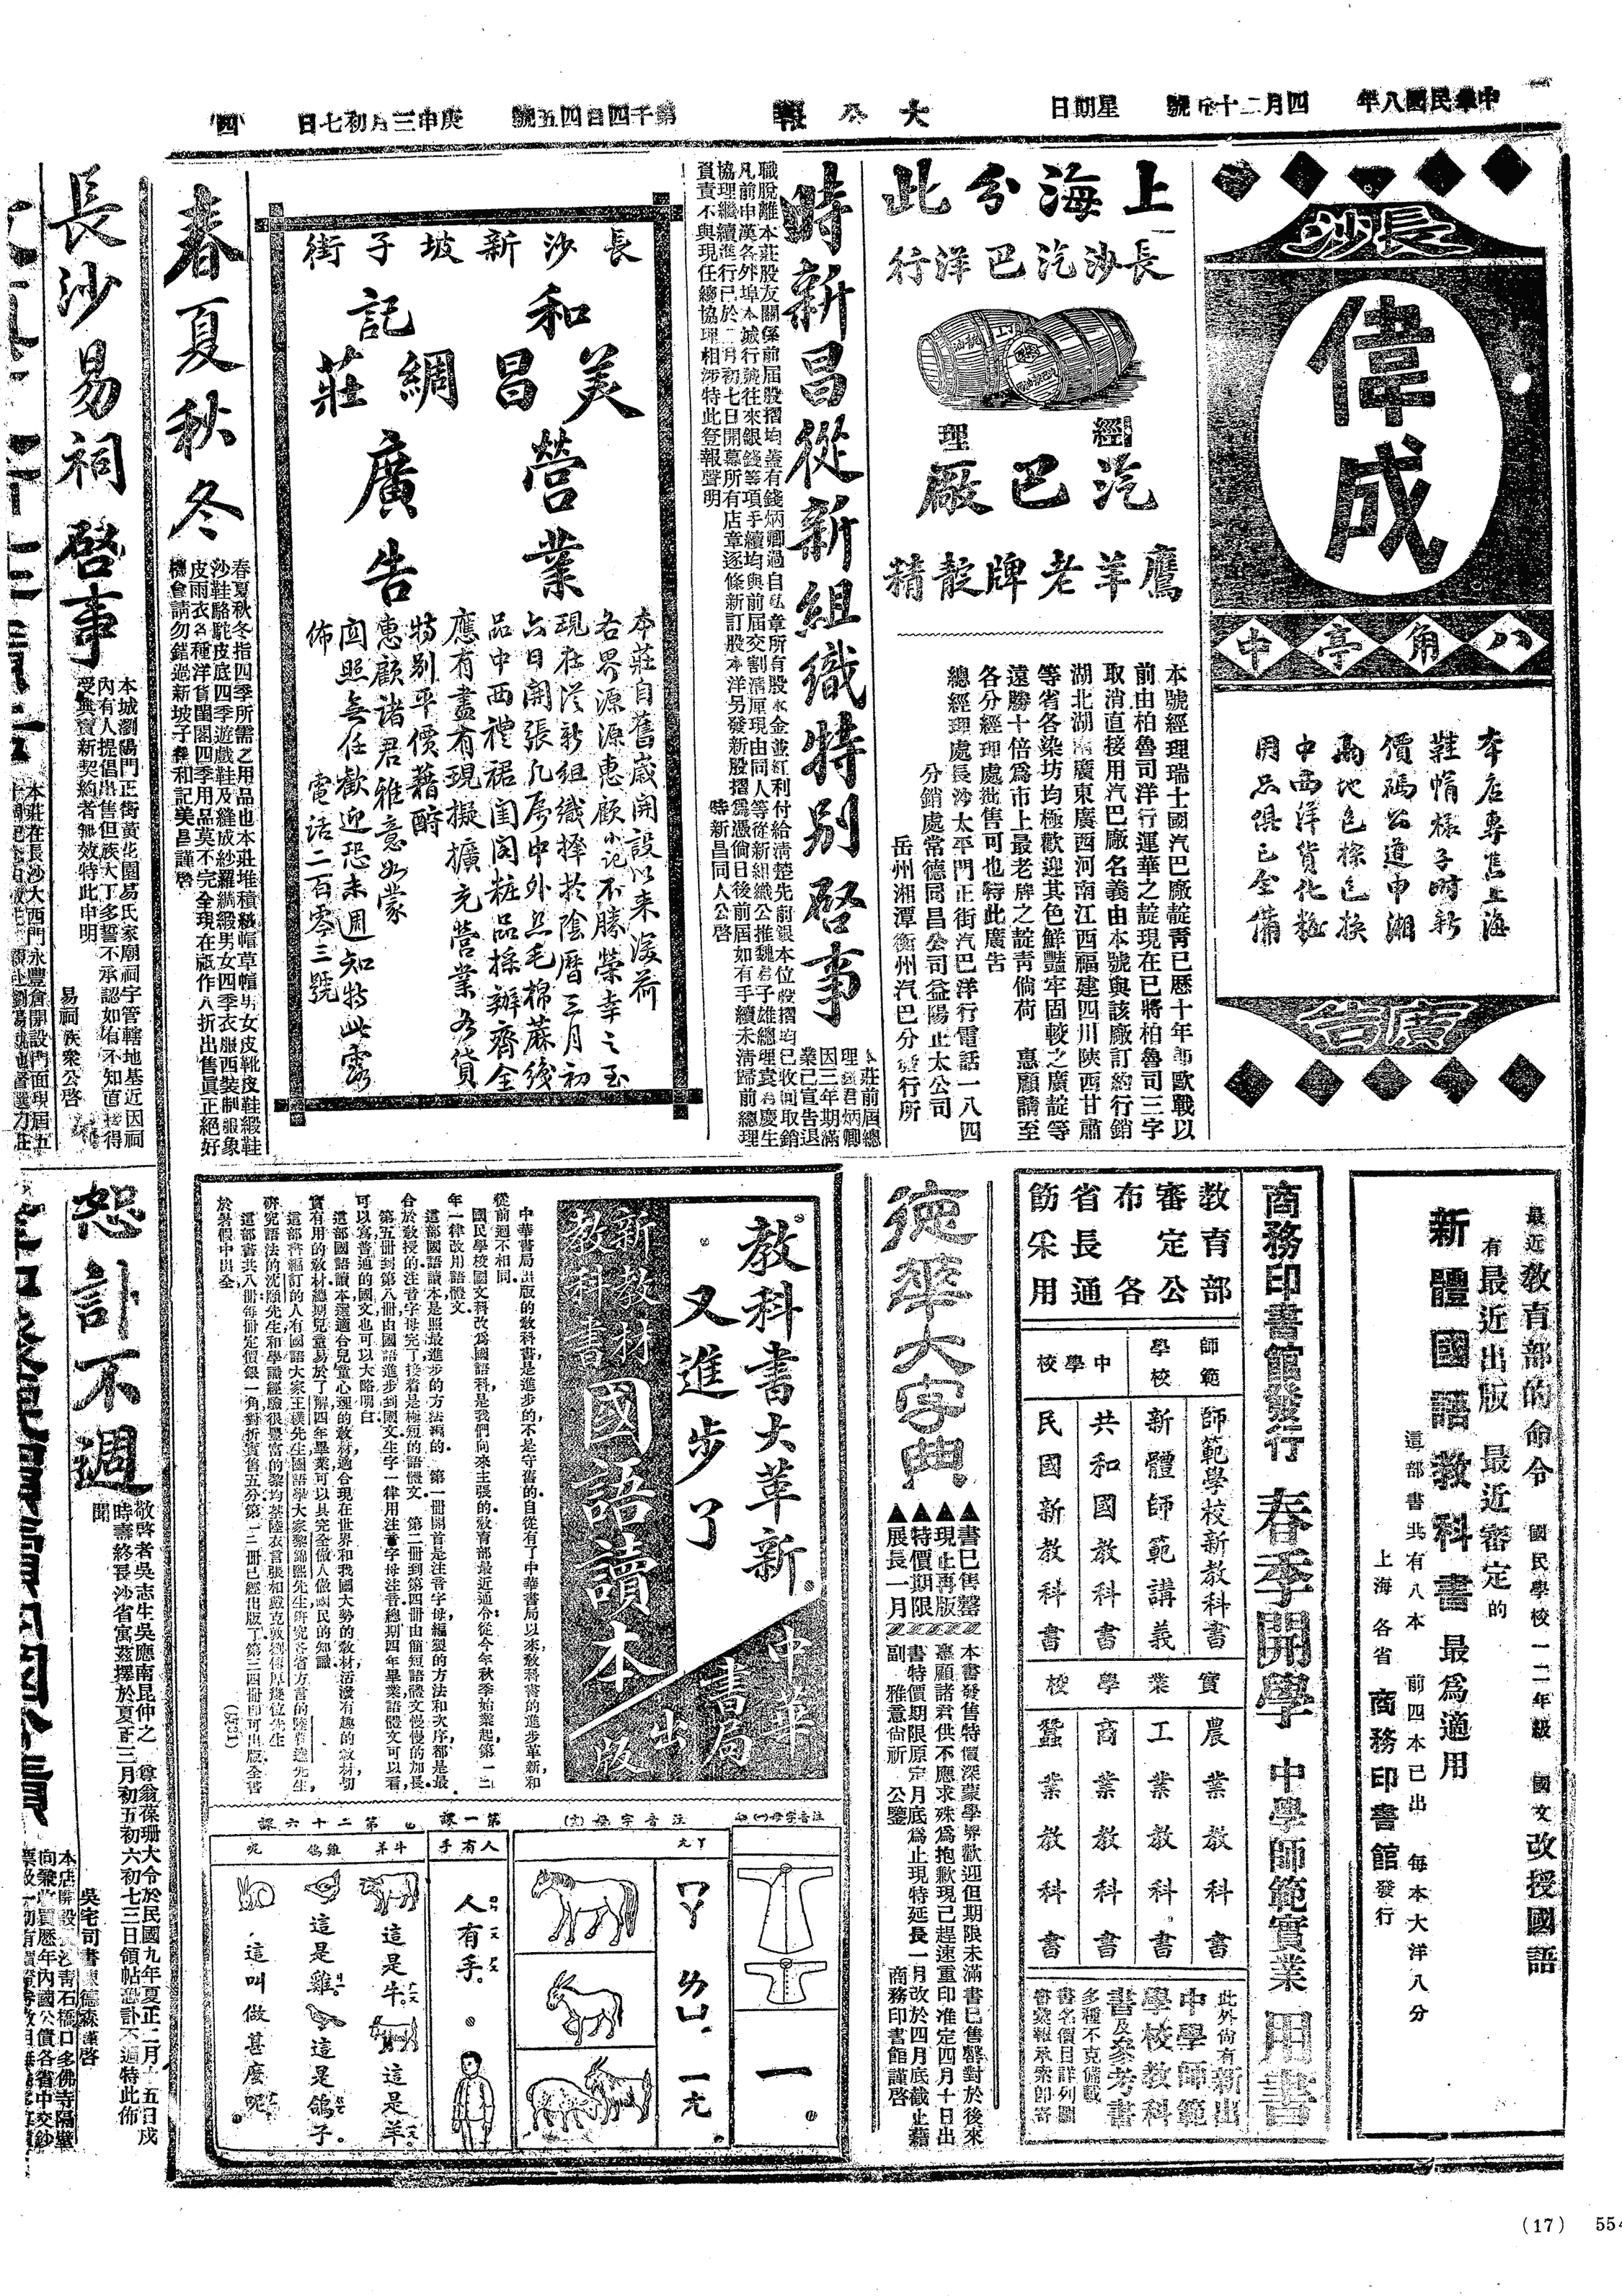 中華民國八年
四月二十五號
星期日
大公報
第千四百四五號
庚申三月初七日
四
長沙
偉成
八角亭中
本店專售上海
鞋帽樣子時新
價碼公道中湘
兩地包探包換
中西洋貨化粧
用品俱已全備
廣告
上海分此
長沙汽巴洋行
經理
汽巴廠
鷹羊老牌靛精
本號經理瑞士國汽巴廠靛青已歷十年卽歐戰以
前由柏魯司洋行運華之靛現在已將柏魯司三字
取消直接用汽巴廠名義由本號與該廠訂約行銷
湖北湖南廣東廣西河南江西福建四川陝西甘肅
等省各染坊均極歡迎其色鮮豔牢固較之廣靛等
遠勝十倍爲市上最老牌之靛青倘荷 惠顧請至
各分經理處批售可也特此廣告
總經理處長沙太平門正街汽巴洋行電話一八四
分銷處常德同昌公司益陽正太公司
岳州湘潭衡州汽巴分發行所
時新昌從新組織特別啓事
本莊前屆總
理錢君炳卿
因三年期滿
業已宣告退
職脫離本莊股友關係前屆股摺均蓋有錢炳卿過自私章所有股本金並紅利付給清楚先前銀本位股摺均已收回取銷
凡前申漢各外埠本城行號往來銀錢等項手續均與前屆交割清原現由同人等從新組織公推魏君子雄總理袁君慶生
協理繼續進行已於二月初七日開幕所有店章逐條新訂股本洋另發新股摺爲憑倘日後前屆如有手續未清歸前總理
負責不與現任總協理相涉特此登報聲明
時新昌同人公啓
長沙新坡子街
和記
美昌綢莊
營業
廣告
本莊自舊歲開設以來深荷
各界源源惠顧小記不勝榮幸之至
現在從新組織擇於陰曆三月初
六日開張凡屬中外絲毛棉蔴綫
品中西禮裙閨閣粧品採辦齊全
應有盡有現擬擴充營業各貨
特別平價藉酧
惠顧諸君雅意如蒙
囘照無任歡迎恐未週知特此露
佈
電話二百零三號
春夏秋冬
春夏秋冬指四季所需之用品也本莊堆積緞帽草帽男女皮靴皮鞋緞鞋
沙鞋駱駝皮底四季遊戲鞋及縫成紗羅綢緞男女四季衣服西裝制服象
皮雨衣各種洋貨閨閣四季用品莫不完全現在祗作八折出售真正絕好
機會請勿錯過新坡子和記美昌謹啓
長沙易祠啓事
本城瀏陽門正街黃花園易氏家廟祠宇管轄地基近因祠
內有人提倡出售但族大丁多誓不承認如有不知直接得
受典賣新契約者無效特此申明
易祠族衆公啓
本莊在長沙大西門永豐倉開設門面現届五
最近教育部的命令 國民學校一二年級 國文改授國語
有最近出版 最近審定的
新體國語教科書 最爲適用
這部書共有八本 前四本已出 每本大洋八分
上海各省 商務印書館發行
商務印書館發行 春季開學 中學師範實業用書
教育部
審定公
布 各
省長通
飭采用
師範
學校
中學校
師範學校新教科書
新體師範講義
共和國教科書
民國新教科書
實業學校
農業教科書
工業教科書
商業教科書
蠶業教科書
此外尚有新出
中學師範
學校教科
書及參考書
多種不克備載
書名價目詳列圖
書彙報承索卽寄
徒華大字典
▲書已售罄
▲現止再版
▲特價期限
▲展長一月
本書發售特價深蒙學界歡迎但期限未滿書已售罄對於後來
惠顧諸君供不應求殊爲抱歉現已趕速重印准定四月十日出
書特價期限原定月底爲止現特延長一月改於四月底截止藉
副 雅意尙祈 公鑒
商務印書館謹啓
教科書大革新
又進步了
新教材
教科書
國語讀本
中華書局出版
中華書局出版的敎科書是進步的不是守舊的自從有了中華書局以來敎科書的進步革新和
從前迥不相同
國民學校國文科改爲國語科是我們向來主張的敎育部最近通令從今年秋季始業起第一二
年一律改用語體文
這部國語讀本是照最進步的方法編的 第一冊開首是注音字母編製的方法和次序都是最
合於敎授的注音字母完了接着是極短的語體文 第二冊到第四冊由簡短語體文慢慢的加長
第五冊到第八冊由國語進步到國文生字一律用注音字母注音總期四年畢業語體文可以看
可以寫普通的國文也可以大略明白
這部國語讀本還適合兒童心理的敎材適合現在世界和我國大勢的敎材活潑有趣的敎材切
實有用的敎材總期兒童易於了解四年畢業可以具完全做人做國民的知識
這部書編訂的人有國語大家王璞先生國語學大家黎錦熙先生研究各省方言的陸費逵先生
研究語法的沈頤先生和學識經驗很豐富的黎均荃陸衣言張相戴克敦劉傳厚幾位先生
這部書共八冊每冊定價銀一角對折實售五分第一二冊已經出版了第三四冊卽可出版全書
於暑假中出全
注音字母(一)
注音字母(完)
ㄚㄤ
第一課
人有手
人有手。
第二十六課
牛羊
雞鴿
呢
這是牛。
這是羊。
這是雞。
這是鴿子。
這叫做甚麼呢。
恕訃不週
敬啓者吳志生吳應南昆仲之 尊翁葆珊大令於民國九年夏正二月十五日戌
時壽終長沙省寓茲擇於夏正三月初五初六初七三日領帖恐訃不週特此佈
聞
吳宅司書陳德森謹啓
本店開設長沙靑石橋口多佛寺隔壁
(17)
554